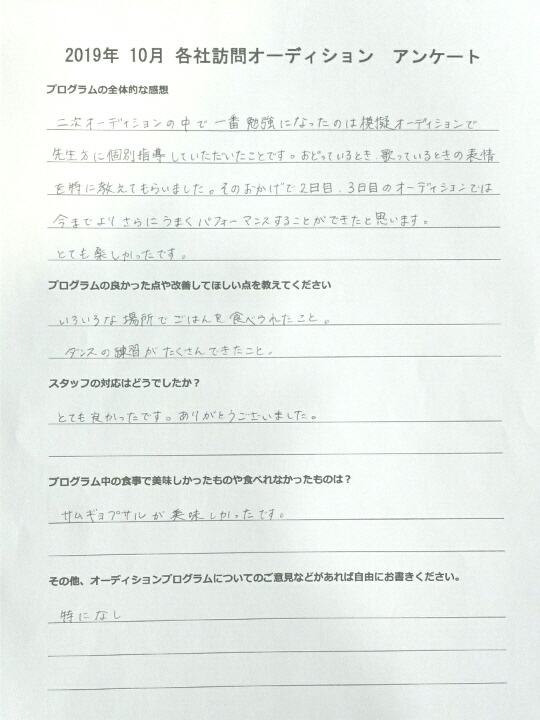 2019年 10月 各社訪問オーディション アンケート
プログラムの全体的な感想
二次オーディションの中で一番勉強になったのは模擬オーディションで
先生方に個別指導していただいたことです。おどっているとき、歌っているときの表情
を特に教えてもらいました。そのおかげで2日目、3日目のオーディションでは
今までよりさらにうまくパフォーマンスすることができたと思います。
とても楽しかったです。
プログラムの良かった点や改善してほしい点を教えてください
いろいろな場所でごはんを食べられたこと。
ダンスの練習がたくさんできたこと。
スタッフの対応はどうでしたか？
とても良かったです。ありがとうございました。
プログラム中の食事で美味しかったものや食べれなかったものは？
サムギョプサルが美味しかったです。
その他、オーディションプログラムについてのご意見などがあれば自由にお書きください。
特になし